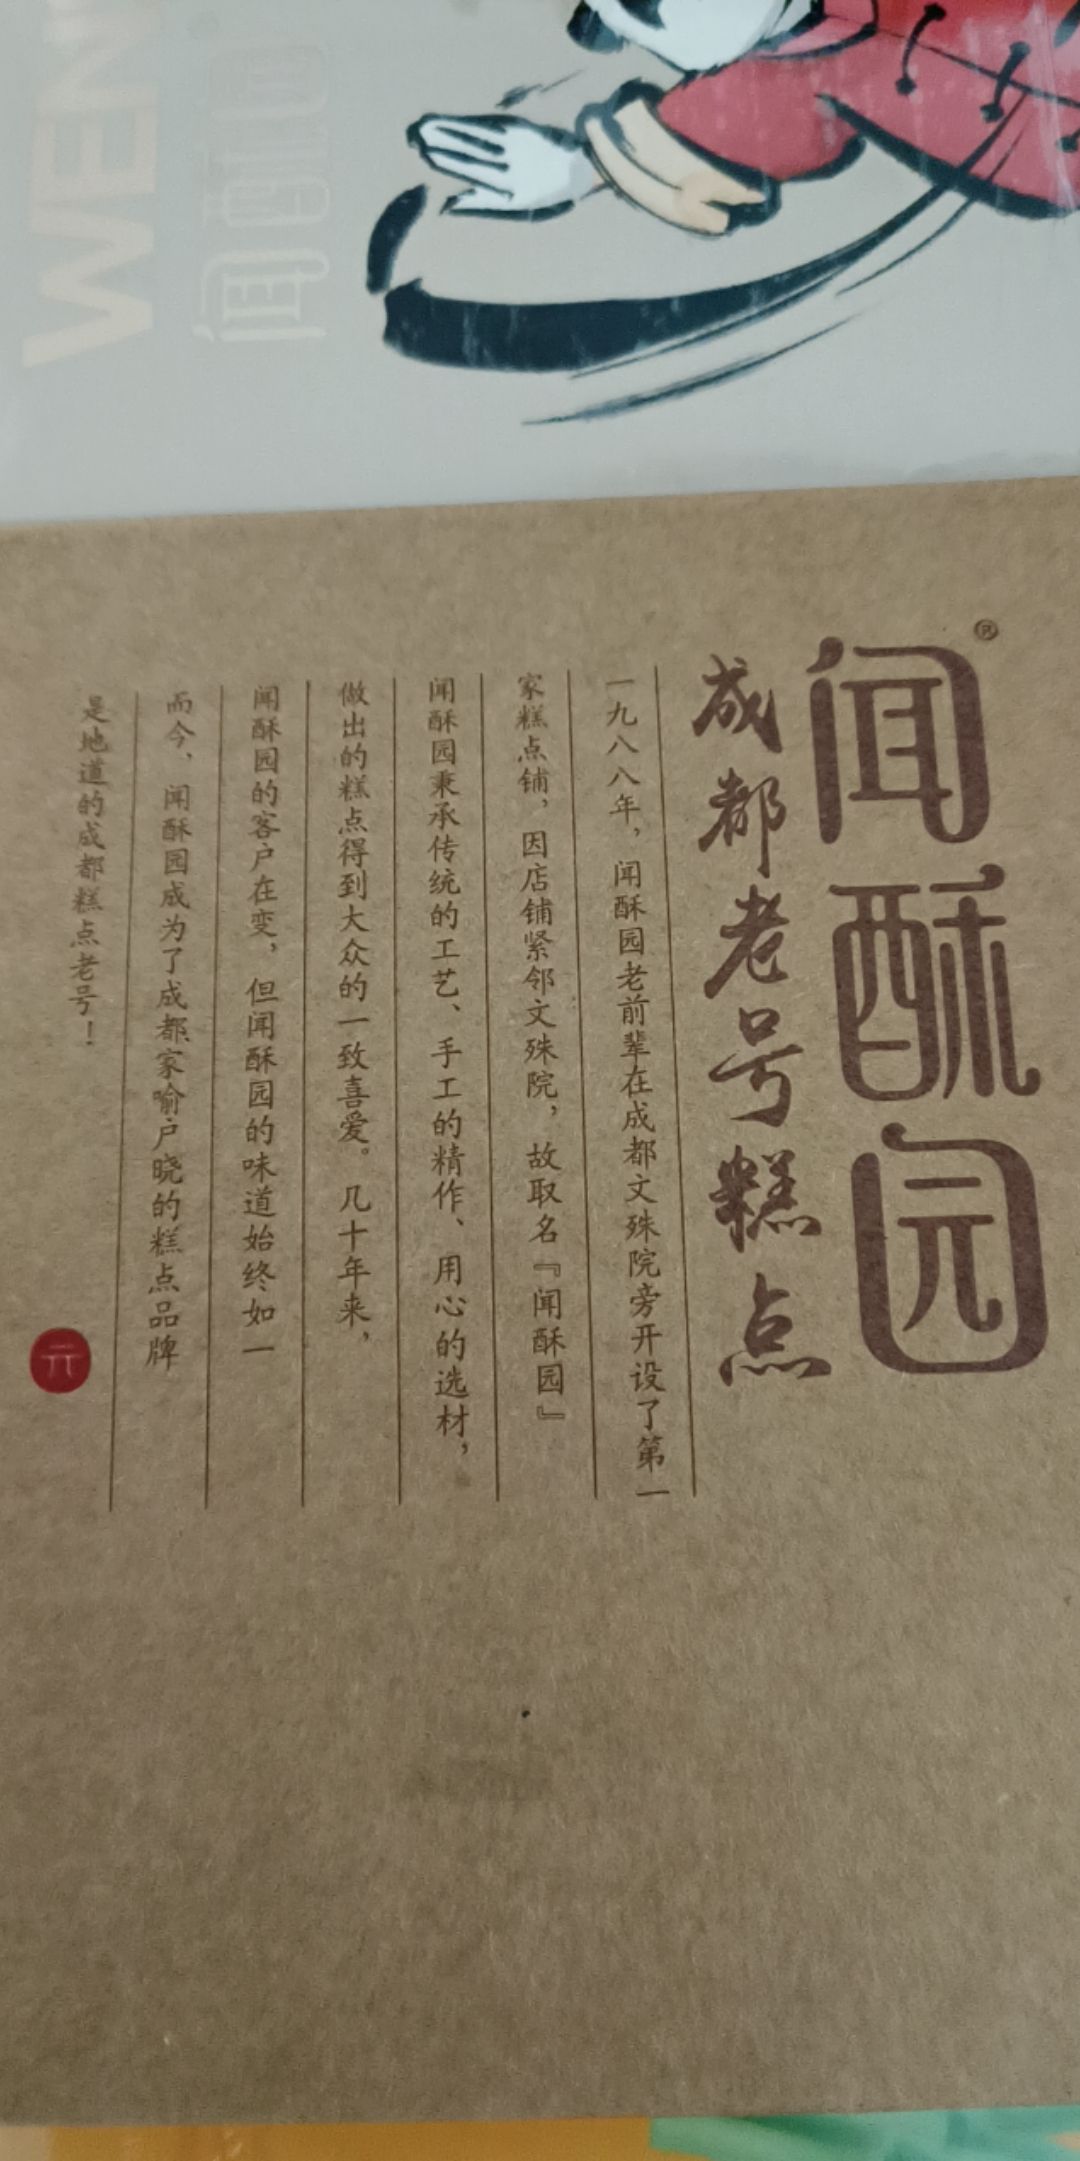 WEN
闻酥园®
成都老号糕点
一九八八年，闻酥园老前辈在成都文殊院旁开设了第一
家糕点铺，因店铺紧邻文殊院，故取名『闻酥园』
闻酥园秉承传统的工艺、手工的精作、用心的选材，
做出的糕点得到大众的一致喜爱。几十年来，
闻酥园的客户在变，但闻酥园的味道始终如一
而今，闻酥园成为了成都家喻户晓的糕点品牌
是地道的成都糕点老号！